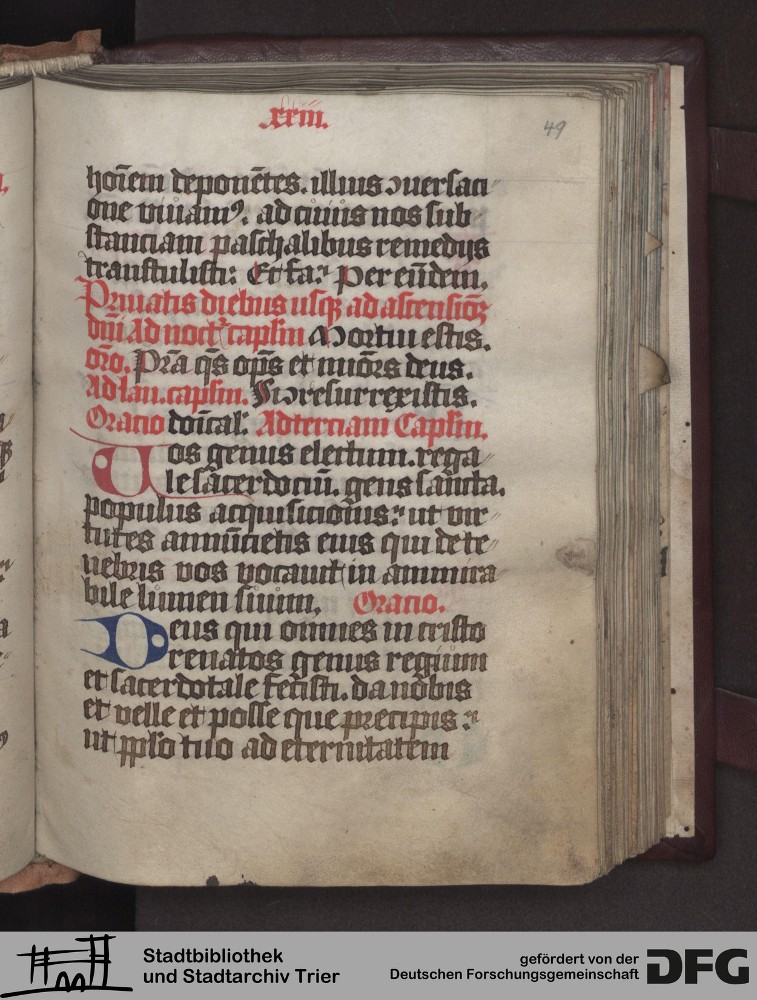 .xxiii.
49
hoı̄em deponētes. illius ↄuersaci
one viuam⁹. ad cuius nos sub
stanciam paschalibus remedijs
transtulisti: Et fa: Per eūdem.
Priuatis diebus usq; ad ascensiōe
dn̄i Ad noct' capl̄m Mortui estis.
or̄o. Pr̄a q̄s op̄s et mı̄ōrs deus.
Ad lau. capl̄m. Si ↄresurrexistis.
Oracio dōı̄cal'. Ad terciam Capl̄m.
Uos genus electum. rega
le sācerdociū. gens sancta.
populus acquisicionis: ut vir
tutes annūcietis eius qui de te
nebris vos vocauit in ammira
bile lumen suum. Oracio.
Deus qui omnes in cristo
renatos genus regium
et sacerdotale fecisti. da nobis
et velle et posse que precipis:
ut pp̄lo tuo ad eternitatem
Stadtbibliothek
und Stadtarchiv Trier
gefördert von der
Deutschen Forschungsgemeinschaft
DFG